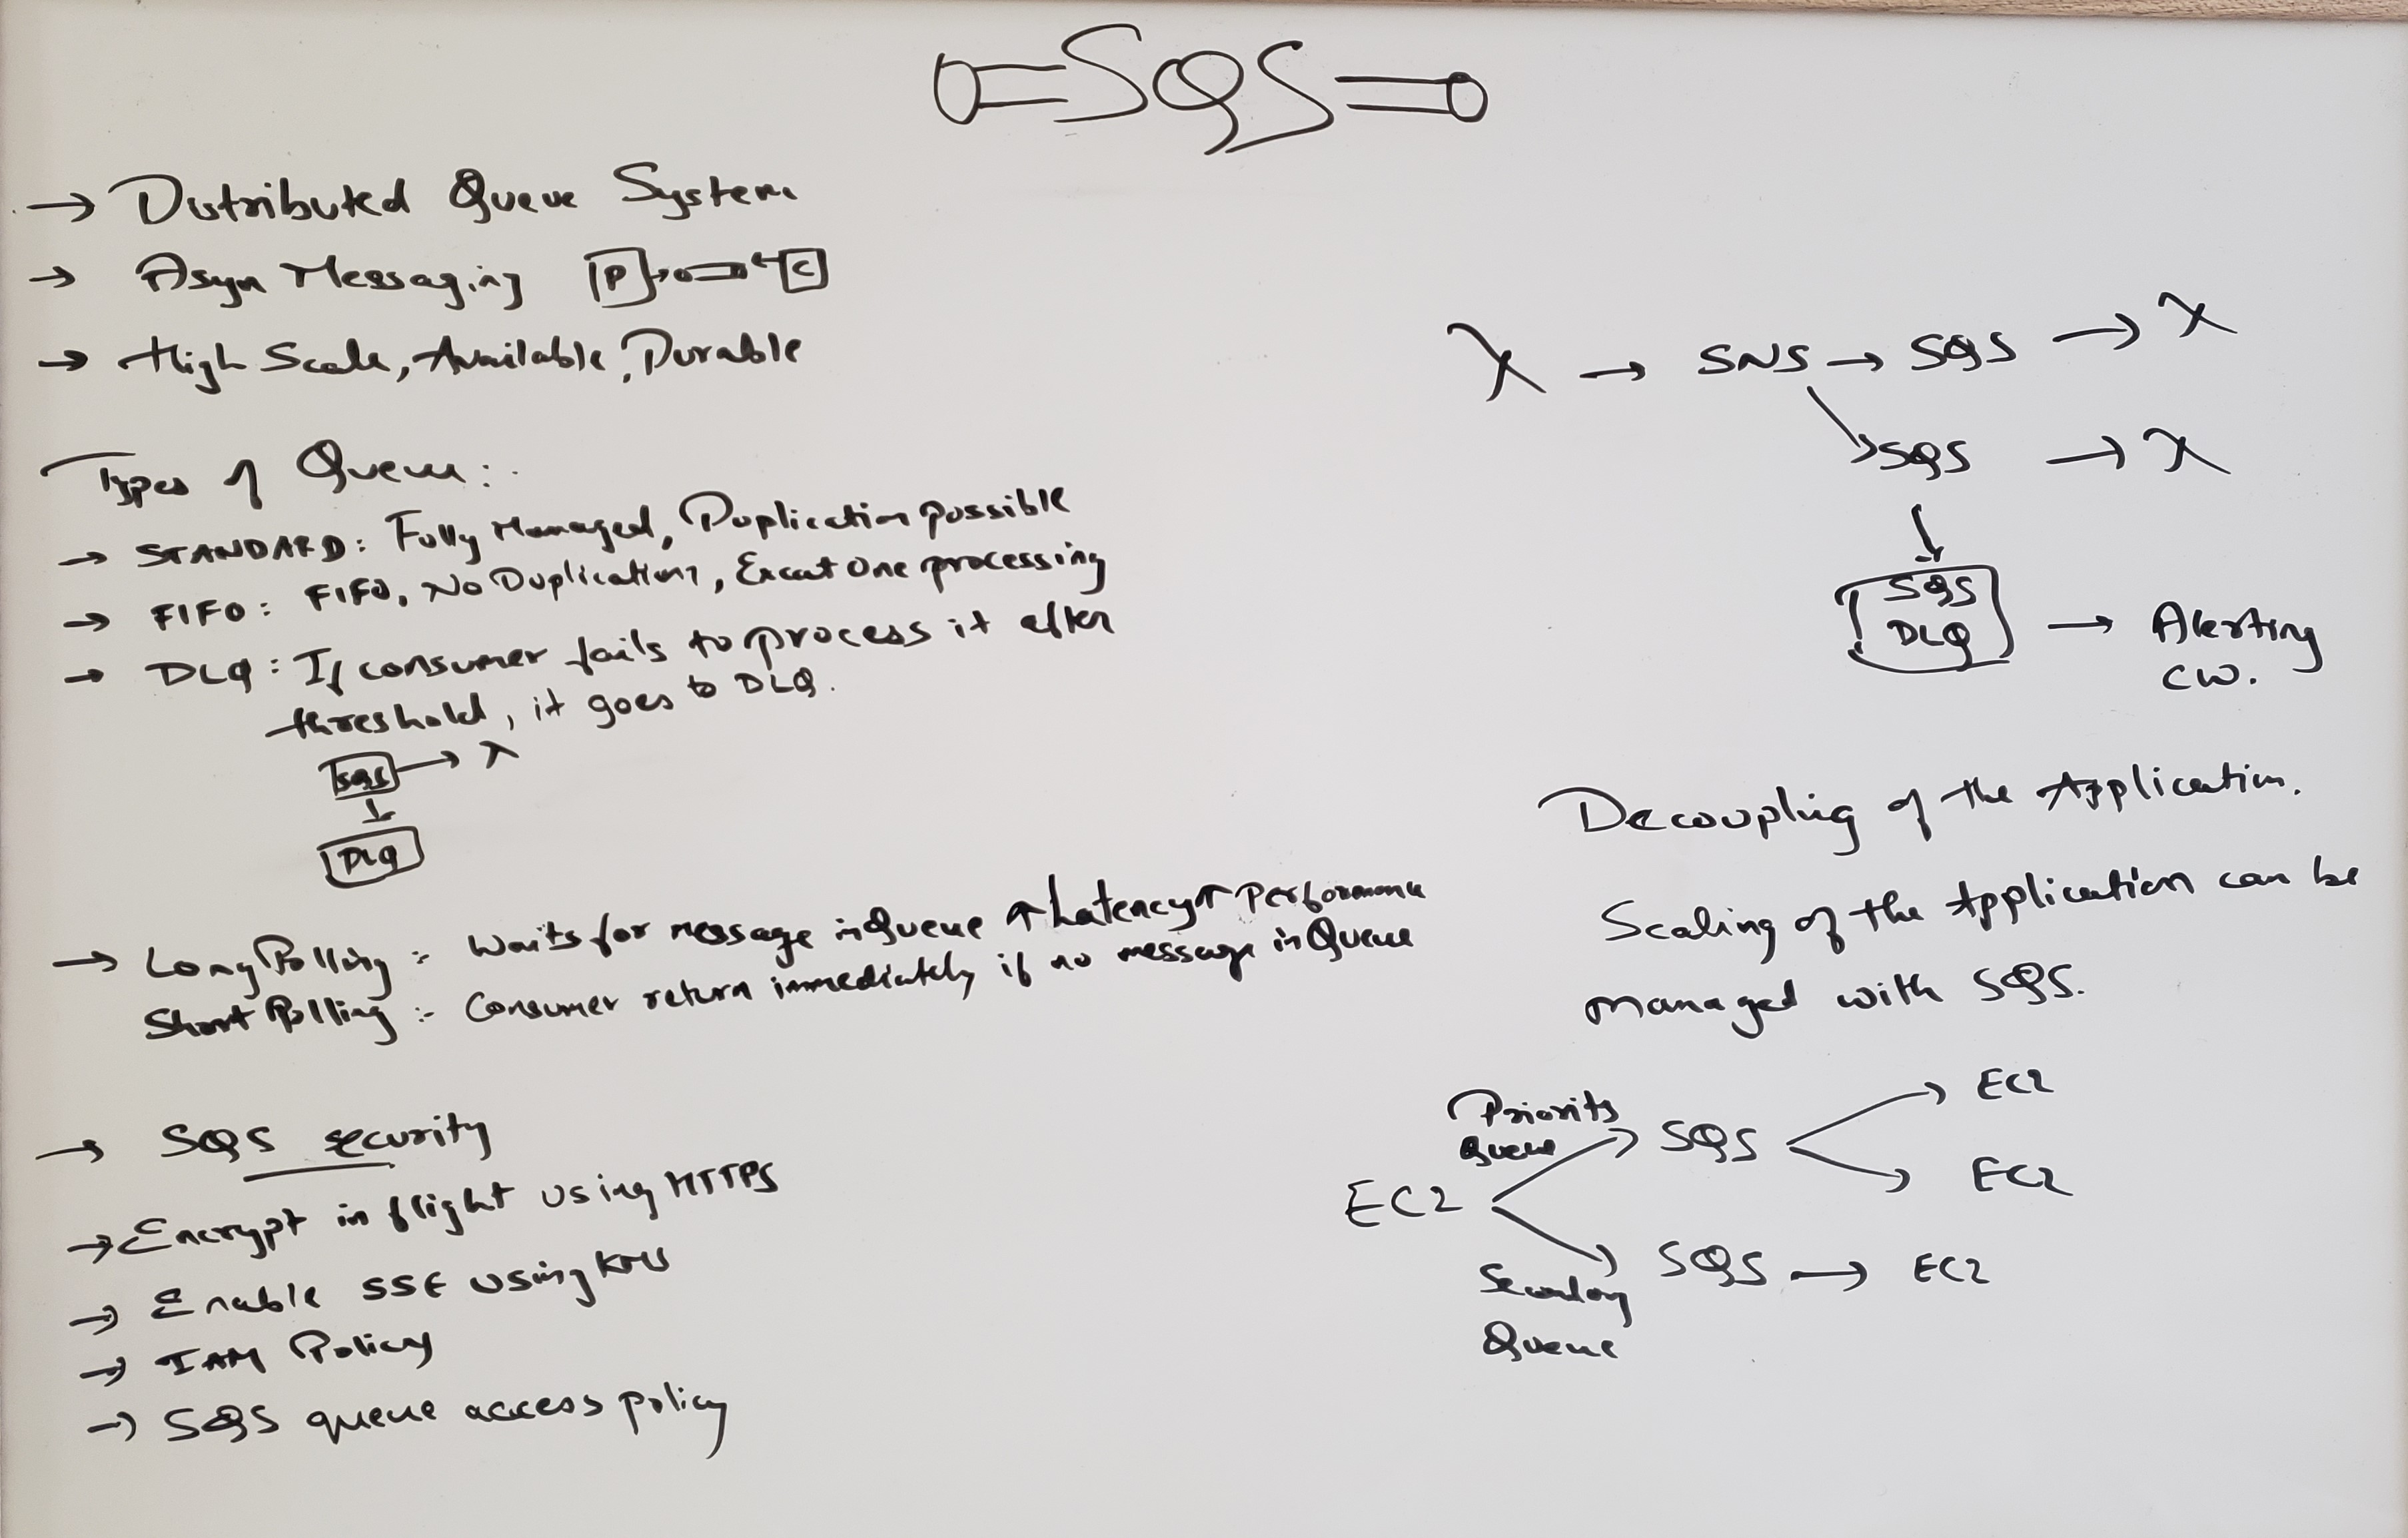 SQS
→ Distributed Queue System
→ Asyn Messaging P → ← C
→ High Scale, Available, Durable
Types of Queue:
→ STANDARD: Fully Managed, Duplication possible
→ FIFO: FIFO, No Duplication, Excat One processing
→ DLQ: If consumer fails to process it after
threshold, it goes to DLQ.
SQS → λ
↓
DLQ
→ Long Polling :- Waits for message in Queue ↑ Latency ↑ Performance
Short Polling :- Consumer return immediately if no message in Queue
→ SQS security
→ Encrypt in flight using HTTPS
→ Enable SSE using KMS
→ IAM Policy
→ SQS queue access policy
λ → SNS → SQS → λ
SQS → λ
↓
SQS
DLQ → Alerting
CW.
Decoupling of the Application.
Scaling of the Application can be
managed with SQS.
Priority
Queue
EC2
SQS
EC2
EC2
SQS → EC2
Secondary
Queue